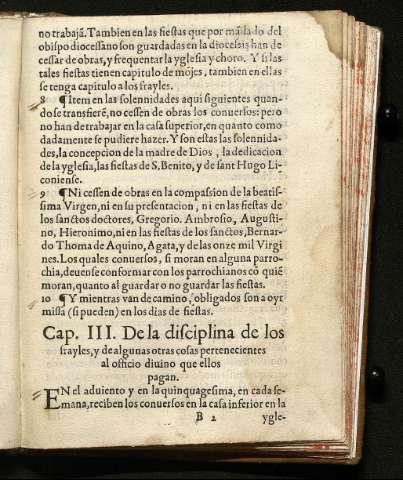 no trabajā. Tambien en las fiestas que por mādado del
obispo diocesano son guardadas en la diocesis han de
cessar de obras, y frequentar la yglesia y choro. Y si las
tales fiestas tienen capitulo de mōjes, tambien en ellas
se tenga capitulo a los frayles.
8 ¶Item en las solennidades aqui siguientes quan-
do se transfierē, no cessen de obras los conuersos: pero
no han de trabajar en la casa superior, en quanto como
dadamente se pudiere hazer. Y son estas las solennida-
des, la concepcion de la madre de Dios, la dedicacion
de la yglesia, las fiestas de S. Benito, y de sant Hugo Li-
coniense.
9 ¶Ni cessen de obras en la compassion de la beatis-
sima Virgen, ni en su presentacion, ni en las fiestas de
los sanctos doctores, Gregorio. Ambrosio, Augusti-
no, Hieronimo, ni en las fiestas de los sanctos, Bernar-
do Thoma de Aquino, Agata, y de las onze mil Virgi
nes. Los quales conuersos, si moran en alguna parro-
chia, deuen se conformar con los parrochianos cō quiē
moran, quanto al guardar o no guardar las fiestas.
10 ¶Y mientras van de camino, obligados son a oyr
missa (si pueden) en los dias de fiestas.
Cap. III. De la disciplina de los
frayles, y de algunas otras cosas pertenecientes
al officio diuino que ellos
pagan.
EN el aduiento y en la quinquagesima, en cada se-
mana, reciben los conuersos en la casa inferior en la
B 2 ygle-